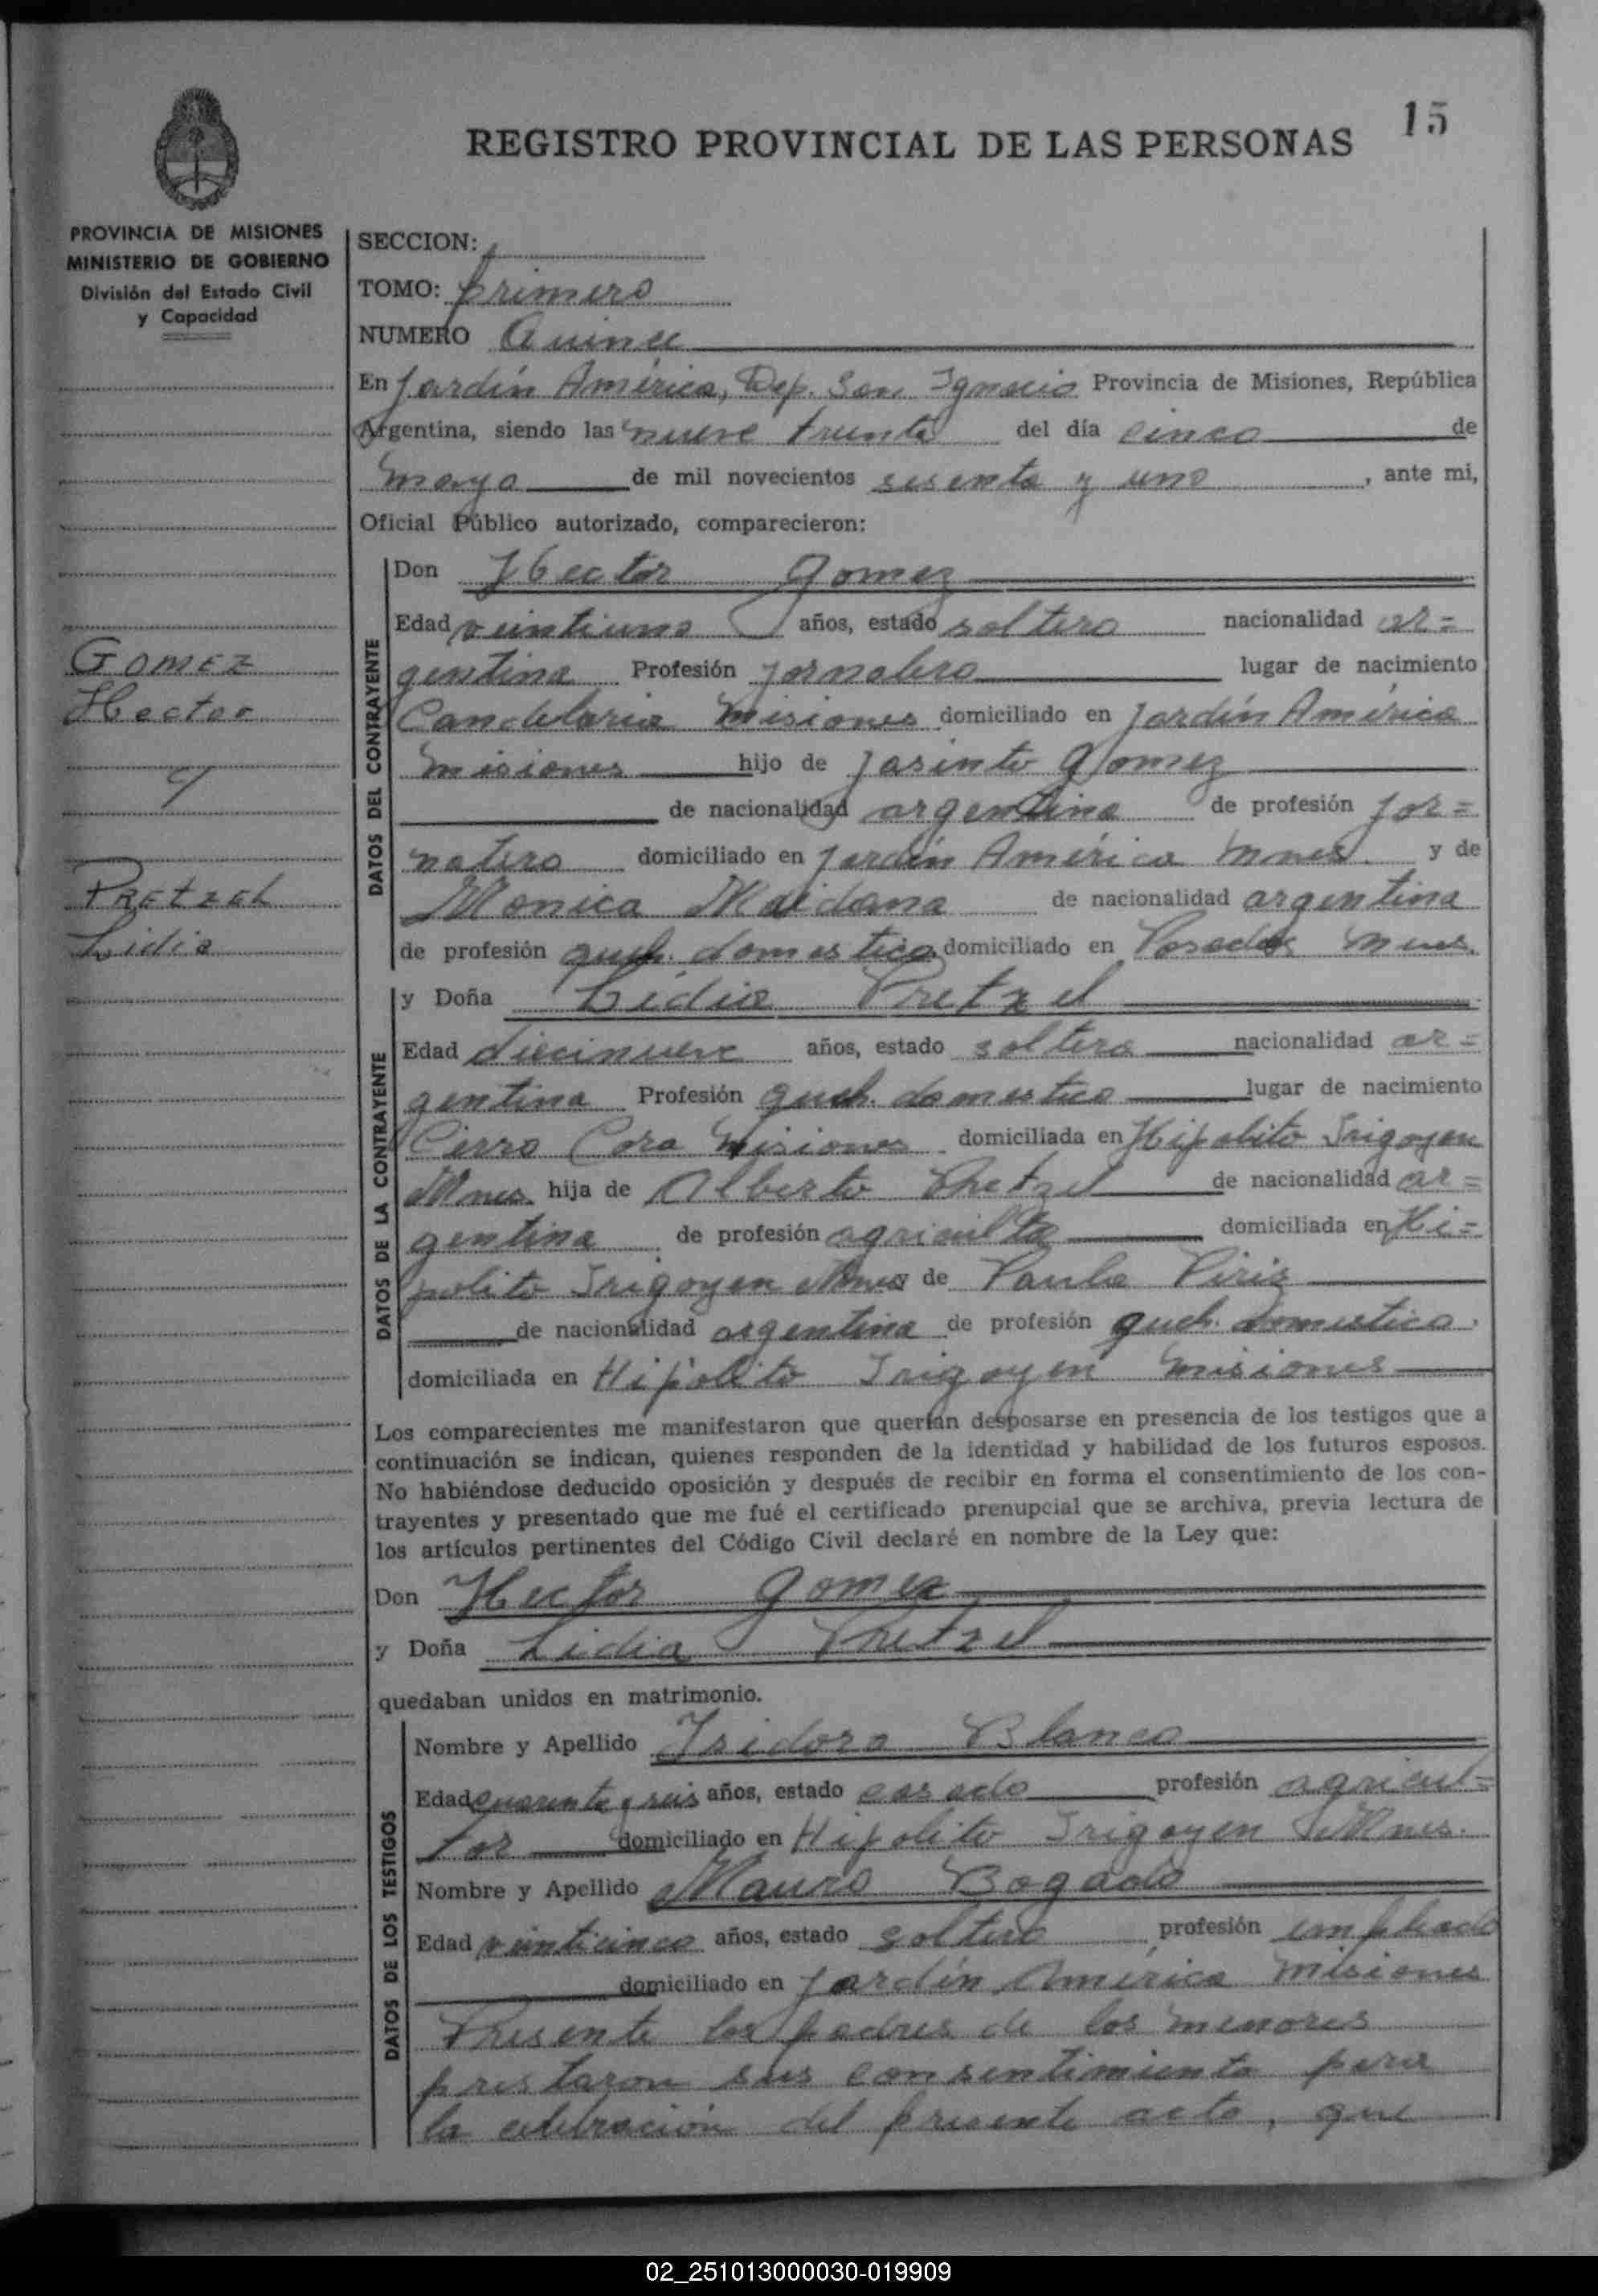 15
REGISTRO PROVINCIAL DE LAS PERSONAS
PROVINCIA DE MISIONES
MINISTERIO DE GOBIERNO
División del Estado Civil
y Capacidad
GOMEZ
Hector
y
PRETZEL
Lidia
SECCION:
TOMO: primero
NUMERO Quince
En Jardín América, Dep. San Ignacio Provincia de Misiones, República
Argentina, siendo las nueve treinta del día cinco de
mayo de mil novecientos sesenta y uno, ante mi,
Oficial Público autorizado, comparecieron:
DATOS DEL CONTRAYENTE
Don Hector Gomez
Edad veintiuno años, estado soltero nacionalidad ar=
gentina Profesión jornalero lugar de nacimiento
Candelaria Misiones domiciliado en Jardín América
Misiones hijo de Jasinto Gomez
de nacionalidad argentina de profesión jor=
nalero domiciliado en Jardín América Mnes. y de
Monica Maidana de nacionalidad argentina
de profesión queh. domestico domiciliado en Posadas Mnes.
DATOS DE LA CONTRAYENTE
y Doña Lidia Pretzel
Edad diecinueve años, estado soltera nacionalidad ar=
gentina Profesión queh. domestico lugar de nacimiento
Cerro Cora Misiones domiciliada en Hipolito Irigoyen
Mnes. hija de Alberto Pretzel de nacionalidad ar=
gentina de profesión domiciliada en Hi=
polito Irigoyen Mnes y de Paula Piriz
de nacionalidad argentina de profesión queh. domestico.
domiciliada en Hipolito Irigoyen Misiones
Los comparecientes me manifestaron que querían desposarse en presencia de los testigos que a
continuación se indican, quienes responden de la identidad y habilidad de los futuros esposos.
No habiéndose deducido oposición y después de recibir en forma el consentimiento de los con-
trayentes y presentado que me fué el certificado prenupcial que se archiva, previa lectura de
los artículos pertinentes del Código Civil declaré en nombre de la Ley que:
Don Hector Gomez
y Doña Lidia Pretzel
quedaban unidos en matrimonio.
DATOS DE LOS TESTIGOS
Nombre y Apellido Isidoro Blanco
Edad cuarenta y seis años, estado casado profesión agricul=
tor domiciliado en Hipolito Irigoyen Mnes.
Nombre y Apellido Mauro Bogado
Edad veinticinco años, estado soltero profesión empleado
domiciliado en Jardín América Misiones
Presente los padres de los menores
prestaron sus consentimiento para
la celebración del presente acto, que
02_251013000030-019909